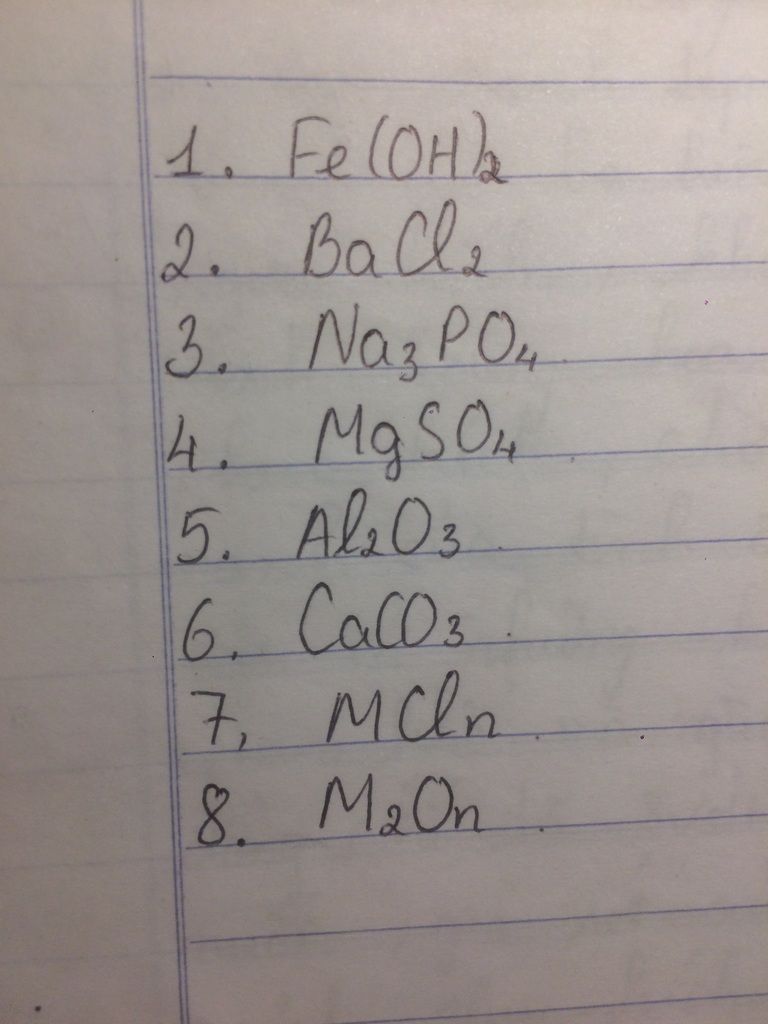 1. Fe(OH)₂
2. BaCl₂
3. Na₃PO₄.
4. MgSO₄.
5. Al₂O₃.
6. CaCO₃.
7, MClₙ.
8. M₂Oₙ.